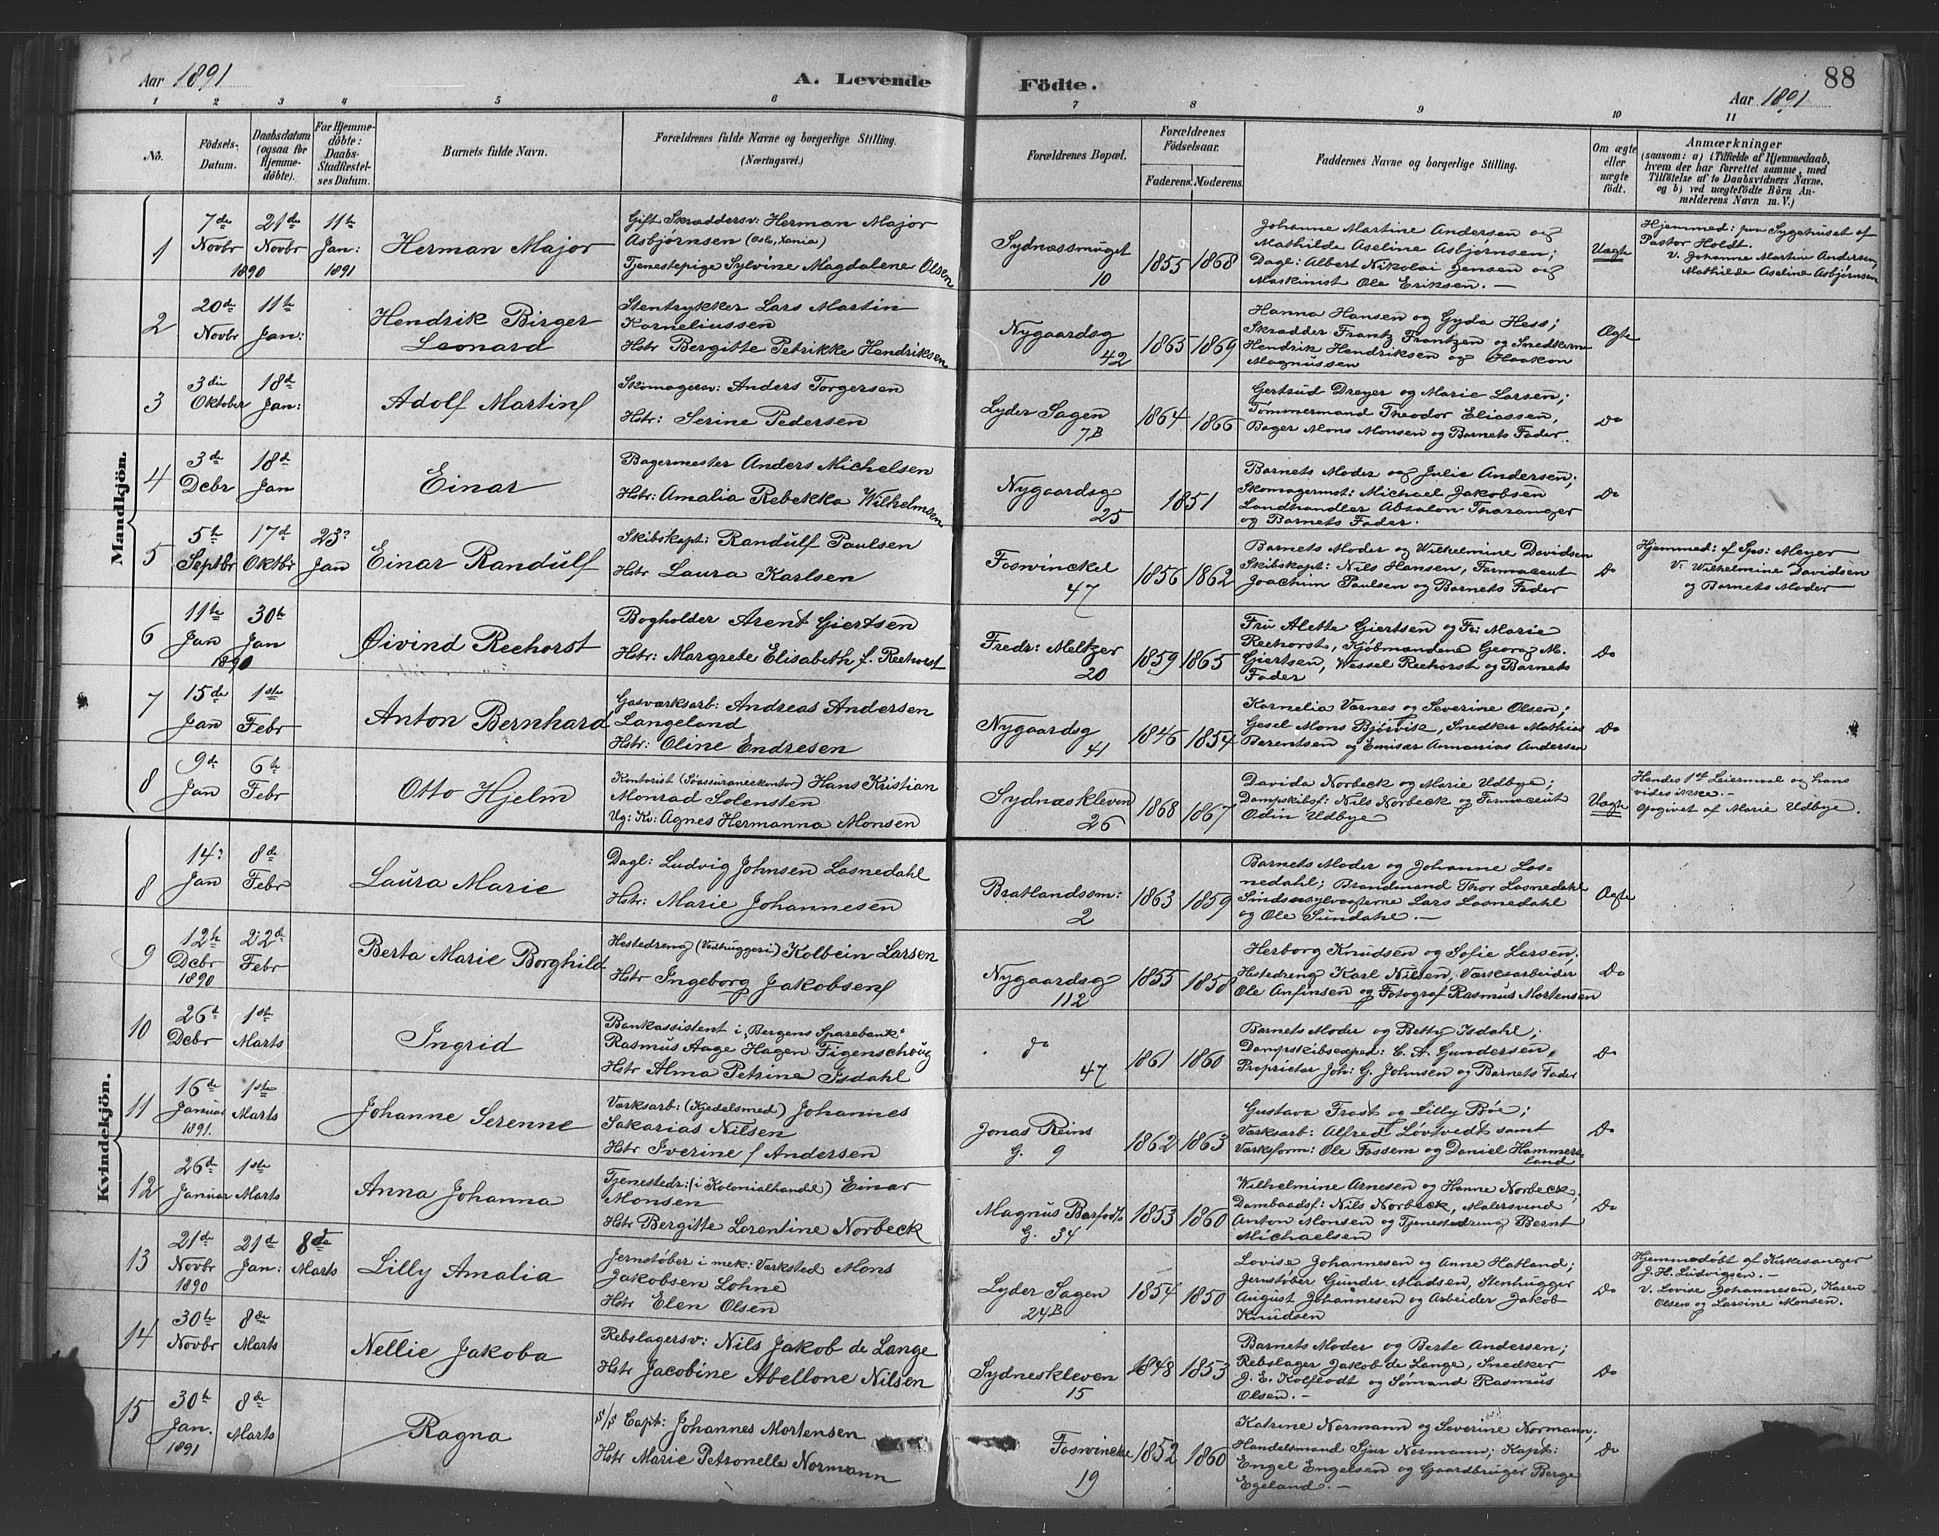 Aar 1891
A. Levende Födte.
88
Aar 1891
1 2 3 4 5 6 7 8 9 10 11
No.
Födsels-
Datum.
Daabsdatum
(ogsaa for
Hjemme-
döbte).
For Hjemme-
döbte:
Daabs-
Stadfæstel-
ses Datum.
Barnets fulde Navn.
Forældrenes fulde Navne og borgerlige Stilling.
(Næringsvei.)
Forældrenes Bopæl.
Forældrenes
Födselsaar.
Faderens. Moderens.
Faddernes Navne og borgerlige Stilling.
Om ægte
eller
uægte
födt.
Anmærkninger
(saasom: a) i Tilfælde af Hjemmedaab,
hvem der har forrettet samme, med
Tilföielse af to Daabsvidners Navne,
og b) ved uægtefödte Börn An-
melderens Navn m. V.)
Mandkjön.
1
7de
Novbr
21de
Novbr
1890
11te
Jan:
1891
Herman Major
Gift Skræddersv: Herman Major
Asbjørnsen (Oslo, Xania)
Tjenestepige Sylvine Magdalene Olsen
Sydnæssmuget
10
1855 1868
Johanne Martine Andersen og
Mathilde Aseline Asbjørnsen;
Dagl: Albert Nikolai Jensen og
Maskinist Ole Eriksen. —
Uægte
Hjemmed: paa Sygehuset af
Pastor Holdt.
V. Johanne Martin Andersen,
Mathilde Aseline Asbjørnsen
2
20de
Novbr
11te
Jan:
Hendrik Birger
Leonard
Stentrykker Lars Martin
Korneliussen
Hstr Bergitte Petrikke Hendriksen
Nygaardsg
42
1865 1869
Hanna Hansen og Gyda Hess;
Skrædder Frantz Frantzen og Snedkerne
Hendrik Hendriksen og Haakon
Magnussen
Ægte
3
3die
Oktober
18de
Jan:
Adolf Martin
Skomagersv: Anders Torgersen
Hstr: Serine Pedersen
Lyder Sagen
7B
1864 1866
Gertrud Dreyer og Marie Larsen;
Tømmermand Theodor Eliassen,
Bager Mons Monsen og Barnets Fader.
Do
4
3de
Dcbr
18de
Jan
Einar
Bagermester Anders Michelsen
Hstr: Amalia Rebekka Wilhelmsen
Nygaardsg
25
1851
Barnets Moder og Julie Andersen;
Skomagermst: Michael Jakobsen
Landhandler Absalon Tharanger
og Barnets Fader.
Do
5
5te
Septbr
17de
Oktbr
23?
Jan
Einar Randulf
Skibskapt: Randulf Paulsen
Hstr Laura Karlsen
Foswinckel
47
1856 1862
Barnets Moder og Wilhelmine Davidsen
Skibskapt: Nils Hansen, Farmaceut
Joachim Paulsen og Barnets Fader
Do
Hjemmed: af Spr: Meyer
V: Wilhelmine Davidsen
og Barnets Moder
6
11te
Jan
30te
Jan
1890
Øivind Reehorst
Bogholder Arent Giertsen
Hstr: Margrete Elisabeth f. Reehorst
Fredr: Meltzer
20
1859 1865
Fru Alette Giertsen og Fr: Marie
Reehorst, Kjøbmændene Georg M.
Giertsen, Wessel Reehorst og Barnets
Fader
Do
7
15de
Jan
1ste
Febr
Anton Bernhard
Gasværksarb: Andreas Andersen
Langeland
Hstr: Oline Endresen
Nygaardsg
41
1846 1854
Kornelia Værnes og Severine Olsen;
Gesel Mons Bjørvik, Snedker Mathias
Berentsen og Emisær Annanias Andersen
Do
8
9de
Jan
6te
Febr
Otto Hjelm
Kontorist (Søassurancekontor) Hans Kristian
Monrad Solensten
Ug: Kv: Agnes Hermanna Monsen
Sydnæskleven
26
1868 1867
Davida Norbeck og Marie Udbye;
Dampskibsf: Nils Norbeck og Farmaceut
Odin Udbye
Uægte
Hendes 1ste Leiermaal og hans
vides ikke.—
Opgivet af Marie Udbye.
Kvindekjön.
8
14?
Jan
8de
Febr
Laura Marie
Dagl: Ludvig Johnsen Losnedahl
Hstr: Marie Johannesen
Bratlandssm:
2
1863 1859
Barnets Moder og Johanne Los-
nedahl; Brandmand Thor Losnedahl
Lars Losnedahl
og Ole Sundahl. —
Ægte
9
12te
Dcbr
1890
22de
Febr
Berta Marie Borghild
Hestedreng (Vedhuggeri) Kolbein Larsen
Hstr Ingeborg Jakobsen
Nygaardsg
112
1855 1858
Herborg Knudsen og Sofie Larsen;
Hestedreng Karl Nilsen, Værksarbeider
Ole Anfinsen og Fotograf Rasmus Mortensen
Do
10
26de
Dcbr
1ste
Marts
Ingrid
Bankassistent i „Bergens Sparebank“
Rasmus Aage Hagen Figenschoug
Hstr Alma Petrine Isdahl
do
47
1861 1860
Barnets Moder og Betty Isdahl;
Dampskibsexped: C. A. Gundersen,
Proprietær Joh: G. Johnsen og Barnets Fader
Do
11
16de
Januar
1891.
1ste
Marts
Johanne Serenne
Værksarb: (Kjedelsmed) Johannes
Sakarias Nilsen
Hstr Iverine f Andersen
Jonas Reins
G. 9
1862 1863
Gustava Frost og Lilly Bøe;
Værksarb: Alfred Løvtvedt samt
Værksform: Ole Fossem og Daniel Hammers-
land
Do
12
26de
Januar
1ste
Marts
Anna Johanna
Tjenestedr: (i Kolonialhandel) Einar
Monsen
Hstr Bergitte Lorentine Norbeck
Magnus Barfods
G. 34
1853 1860
Wilhelmine Arnesen og Hanne Norbeck;
Dambaadsf: Nils Norbeck, Malersvend
Anton Monsen og Tjenestedreng Bernt
Michaelsen
Do
13
21de
Novbr
1890
21de
Jan:
8de
Marts
Lilly Amalia
Jernstøber i mek: Værksted Mons
Jakobsen Lohne
Hstr Elen Olsen
Lyder Sagen
24B
1854 1850
Lovise Johannesen og Anne Hatland;
Jernstøber Gunder Madsen, Stenhugger
August Johannesen og Arbeider Jakob
Knudsen
Do
Hjemmedøbt af Kirkesanger
J. H. Ludvigsen. —
V. Lovise Johannesen, Karen
Olsen og Larsine Monsen.
14
30te
Novbr
8de
Marts
Nellie Jakoba
Rebslagersv: Nils Jakob de Lange
Hstr Jacobine Abellone Nilsen
Sydneskleven
15
1848 1853
Barnets Moder og Berte Andersen;
Rebslager Jakob de Lange, Snedker
J. E. Kolflodt og Sømand Rasmus
Olsen. —
Do
15
30te
Jan.
1891
8de
Marts
Ragna
S/S Capt: Johannes Mortensen
Hstr Marie Petronelle Normann
Foswincke
19
1852 1860
Katrine Normann og Severine Normann;
Handelsmand Sjur Normann; Kapt:
Engel Engelsen og Gaardbruger Berge
Egeland. —
Do